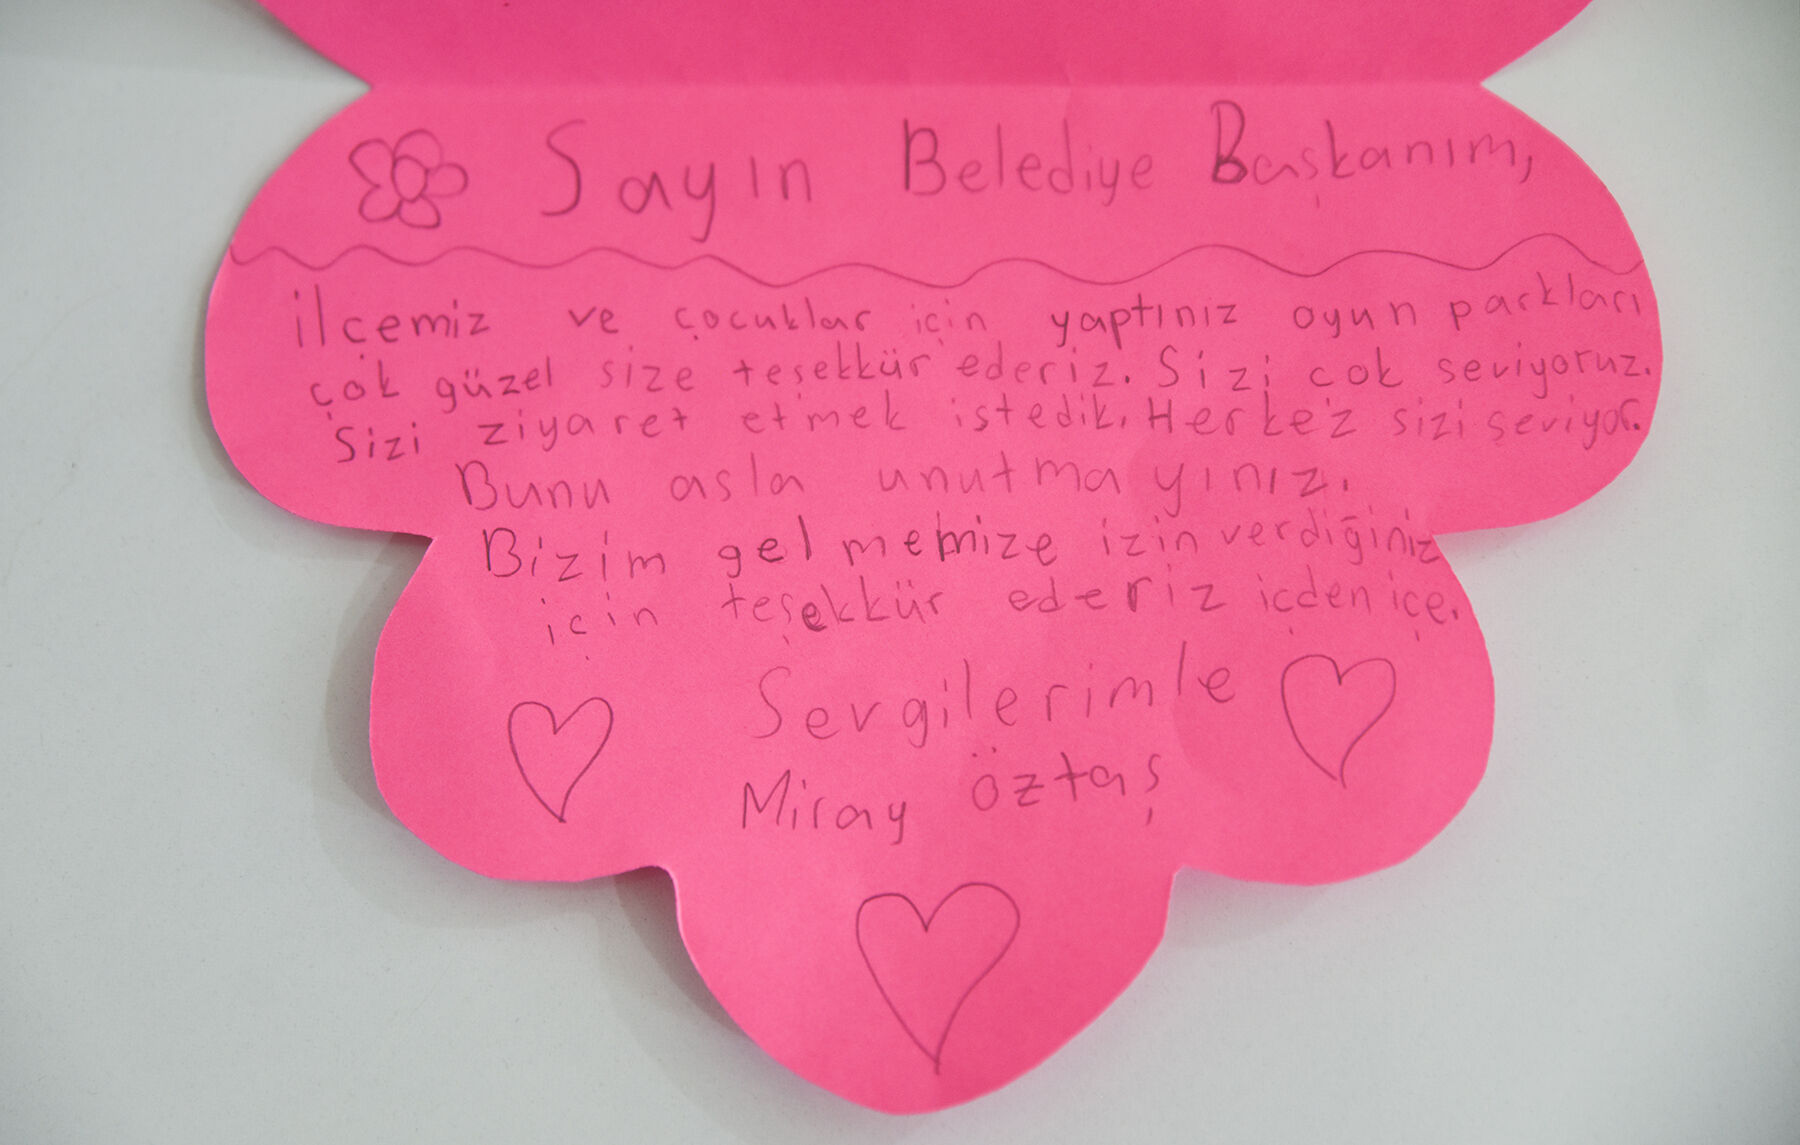 Sayın Belediye Başkanım,
ilçemiz ve çocuklar için yaptınız oyun parkları
çok güzel size teşekkür ederiz. Sizi cok seviyoruz.
Sizi ziyaret etmek istedik. Herkez sizi şeviyor.
Bunu asla unutmayınız.
Bizim gelmemize izin verdiğiniz
için teşekkür ederiz içden içe.
Sevgilerimle
Miray öztaş